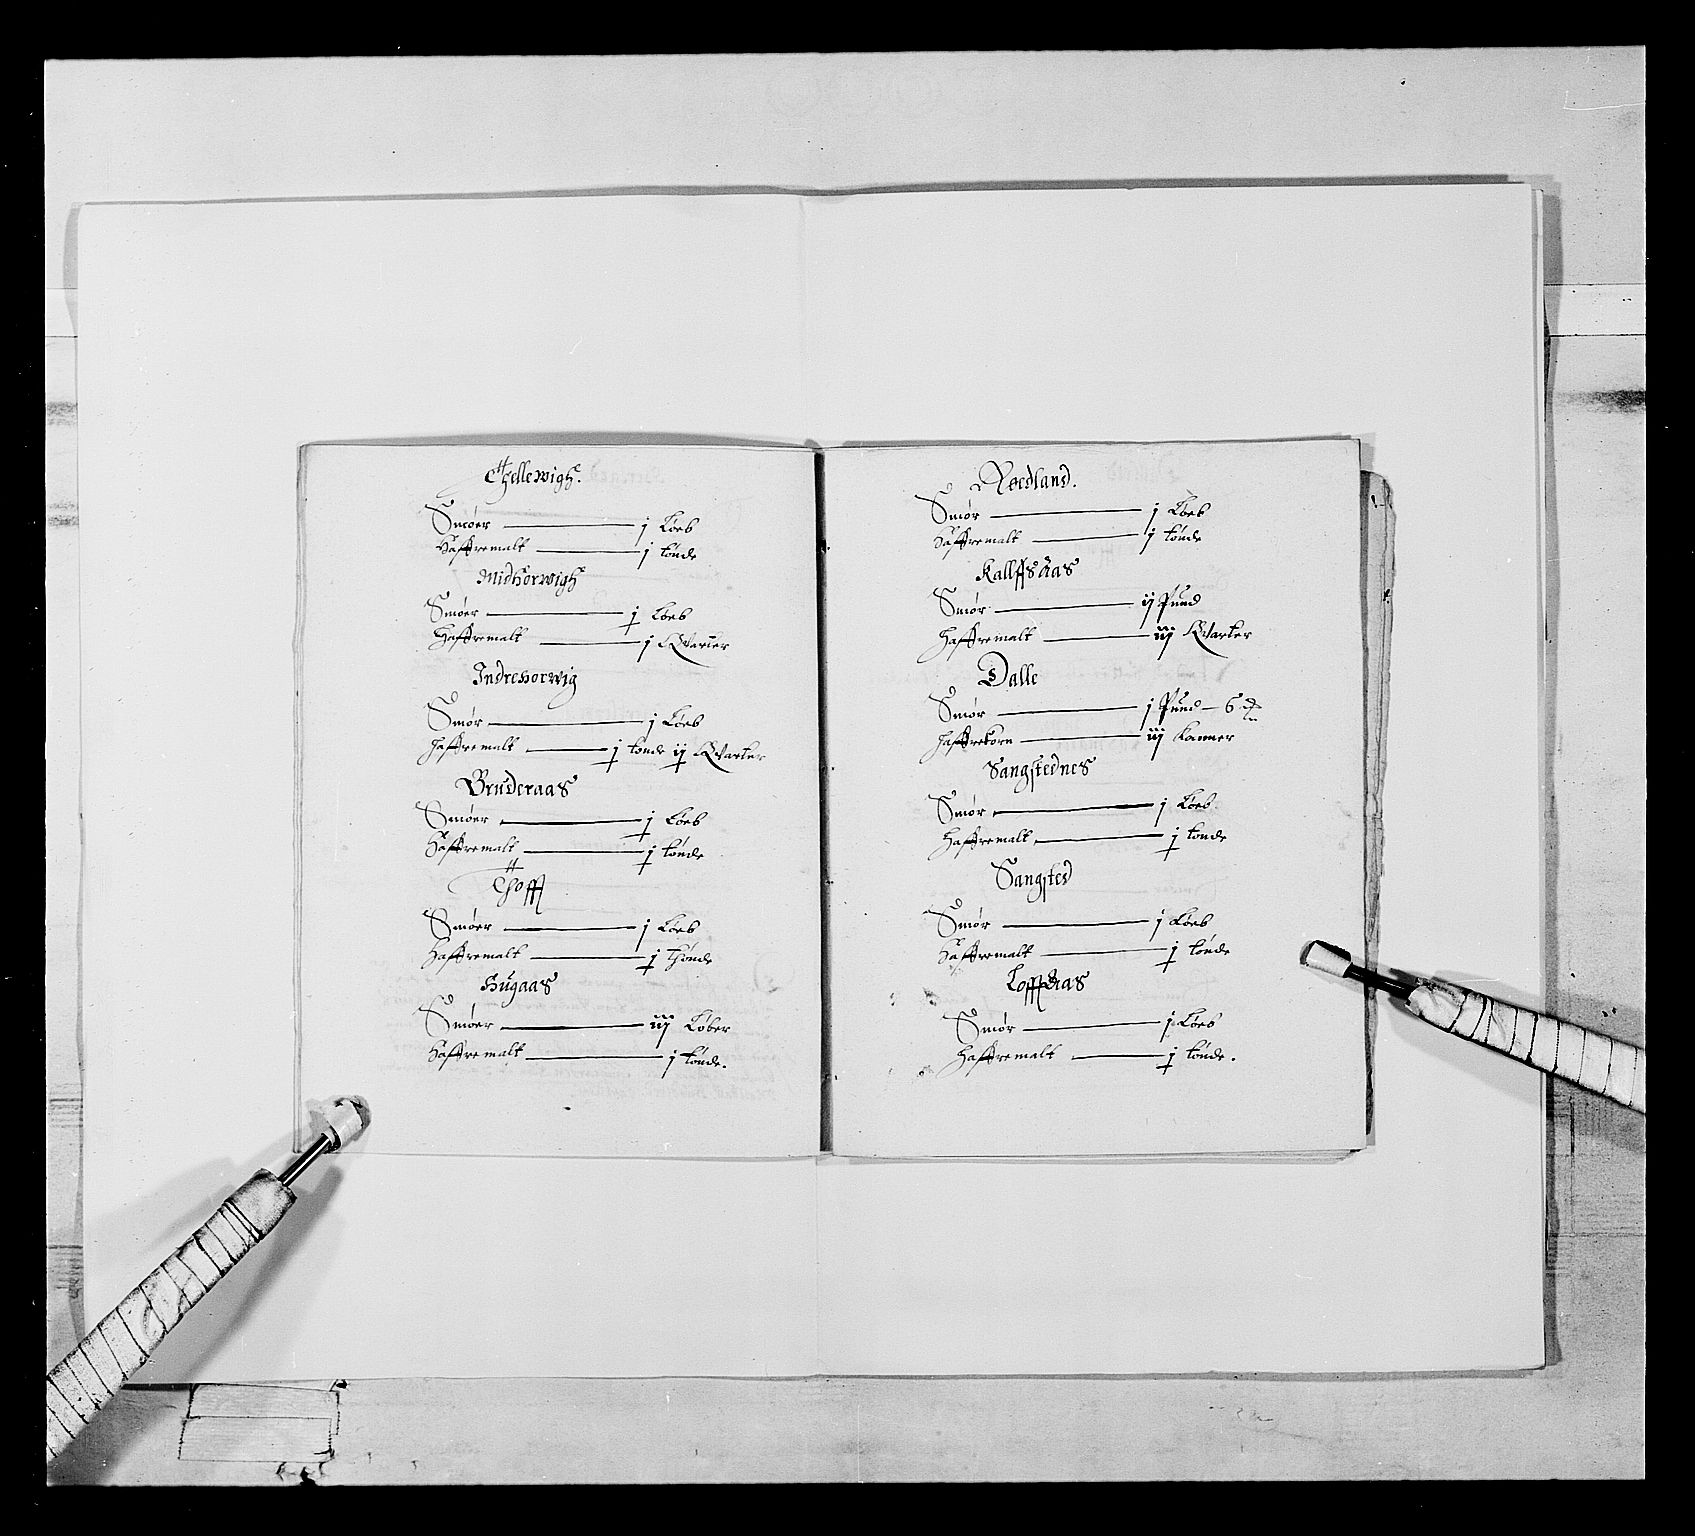 Thellewigh.
Smöer — j Löeb
Haffremalt — j tönde
Midhorwigh
Smöer — j Löeb
Haffremalt — j Quarter
Indrehorwig
Smör — j Löeb
Haffremalt — j tönde ij Quarter
Bruderaas
Smöer — j Löeb
Haffremalt — j tönde
Thofft
Smöer — j Löeb
Haffremalt — j thönde
Hugaas
Smöer — iij Löber
Haffremalt — j tönde.
Roedland.
Smör — j Löeb
Haffremalt — j tönde
Kallffsåas
Smör — ij Pund
Haffremalt — iij Quarter
Dalle
Smör — j Pund — 6
Haffrekorn — iij Kanner
Sangstednes
Smör — j Löeb
Haffremalt — j tönde
Sangsted
Smör — j Löeb
Haffremalt — j tönde
Lofftåas
Smör — j Löeb
Haffremalt — j tönde.